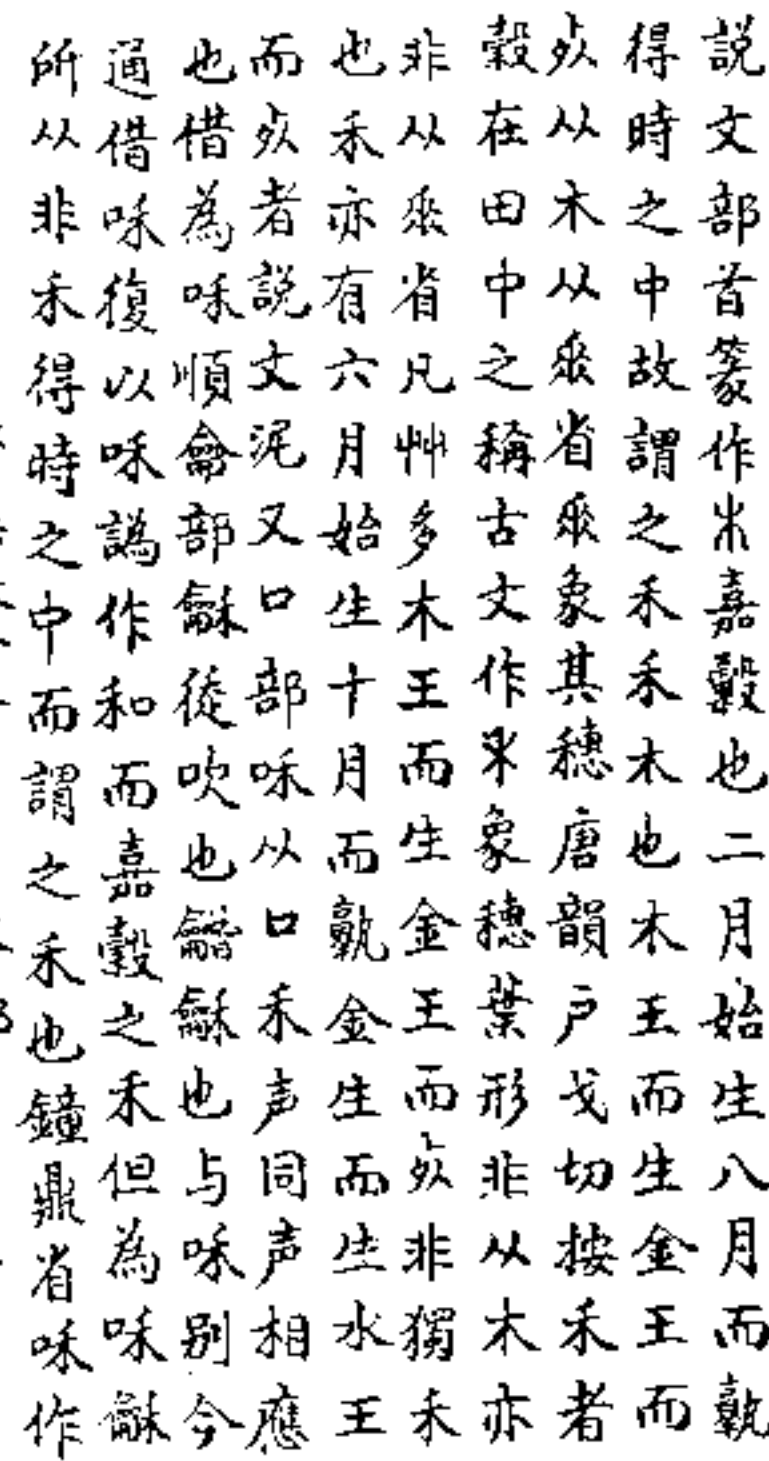 説文部首篆作朩嘉穀也二月始生八月而孰
得時之中故謂之禾禾木也木王而生金王而
𣦸从木从𠂹省𠂹象其穗唐韻戸戈切按禾者
穀在田中之稱古文作𥝌象穗葉形非从木亦
非从𠂹省凡艸多木王而生金王而𣦸非獨禾
也禾亦有六月始生十月而孰金生而生水王
而𣦸者説文泥又口部咊从口禾声同声相應
也借為咊順龠部龢㣥吹也龤龢也与咊别今
通借咊復以咊譌作和而嘉穀之禾但為咊龢
所从非禾得時之中而謂之禾也鐘鼎省咊作